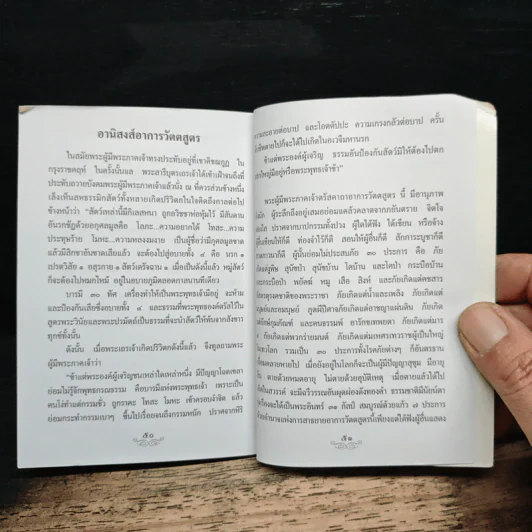 อานิสงส์อาการวัตตสูตร
ในสมัยพระผู้มีพระภาคเจ้าทรงประทับอยู่ที่เขาคิชฌกูฏ ใน
กรุงราชคฤห์ ในครั้งนั้นแล พระสารีบุตรเถรเจ้าได้เข้าเฝ้าจนถึงที่
ประทับถวายบังคมพระผู้มีพระภาคเจ้าแล้วนั่ง ณ ที่ควรส่วนข้างหนึ่ง
เล็งเห็นสหธรรมิกสัตว์ทั้งหลายเกิดปริวิตกในใจคิดถึงกาลต่อไป
ข้างหน้าว่า "สัตว์เหล่านี้มีกิเลสหนา ถูกอวิชชาห่อหุ้มไว้ มีสันดาน
อันรกชัฏด้วยอกุศลมูลคือ โลภะ...ความอยากได้ โทสะ...ความ
ประทุษร้าย โมหะ...ความหลงงมงาย เป็นผู้ชื่อว่ามีกุศลมูลขาด
แล้วมีสิกขาอันขาดเสียแล้ว จะต้องไปสู่อบายทั้ง ๔ คือ นรก ๑
เปรตวิสัย ๑ อสุรกาย ๑ สัตว์เดรัจฉาน ๑ เมื่อเป็นดังนี้แล้ว หมู่สัตว์
ก็จะต้องไปหมกไหม้ อยู่ในอบายภูมิตลอดกาลนานทีเดียว
บารมี ๓๐ ทัศ เครื่องทำให้เป็นพระพุทธเจ้ามีอยู่ จะห้าม
และป้องกันเสียซึ่งอบายทั้ง ๔ และธรรมที่พระพุทธองค์ตรัสไว้ใน
สูตรพระวินัยและพระปรมัตถ์เป็นธรรมที่จะนำสัตว์ให้พ้นจากสังขาร
ทุกข์ทั้งนั้น
ดังนั้น เมื่อพระเถรเจ้าเกิดปริวิตกดังนี้แล้ว จึงทูลถามพระ
ผู้มีพระภาคเจ้าว่า
"ข้าแต่พระองค์ผู้เจริญชนเหล่าใดเหล่าหนึ่ง มีปัญญาโฉดเขลา
ย่อมไม่รู้จักพุทธกรณธรรม คือบารมีแห่งพระพุทธเจ้า เพราะเป็น
คนโง่ทำแต่กรรมชั่ว ถูกราคะ โทสะ โมหะ เข้าครอบงำจิต แล้ว
ย่อมกระทำกรรมเบาๆ ขึ้นไปเรื่อยจนถึงกรรมหนัก ปราศจากหิริ
๕๐
ความละอายต่อบาป และโอตตัปปะ ความเกรงกลัวต่อบาป ครั้น
ชีพตายไปก็จะได้ไปเกิดในอเวจีมหานรก
ข้าแต่พระองค์ผู้เจริญ ธรรมอันป้องกันสัตว์มิให้ต้องไปตก
ใหญ่มีอยู่หรือพระพุทธเจ้าข้า"
พระผู้มีพระภาคเจ้าตรัสคาถาอาการวัตตสูตรนี้ มีอานุภาพ
ผู้ระลึกถึงอยู่เสมอย่อมแคล้วคลาดจากภยันตราย จิตใจ
ปราศจากบาปกรรมทั้งปวง ผู้ใดได้ฟัง ได้เขียน หรือจ้าง
เขียนให้ก็ดี ท่องจำไว้ก็ดี สอนให้ผู้อื่นก็ดี สักการะบูชาก็ดี
ก็ดี ผู้นั้นย่อมไม่ประสบภัย ๓๐ ประการ คือ ภัย
งูพิษ สุนัขป่า สุนัขบ้าน โคบ้าน และโคป่า กระบือบ้าน
และกระบือป่า พยัคฆ์ หมู เสือ สิงห์ และภัยเกิดแต่คชสาร
จตุรงคชาติของพระราชา ภัยเกิดแต่น้ำและเพลิง ภัยเกิดแต่
มนุษย์และอมนุษย์ ภูตผีปีศาจภัยเกิดแต่อาชญาแผ่นดิน ภัยเกิดแต่
ยักษ์กุมภัณฑ์ และคนธรรพ์ อารักขเทพยดา ภัยเกิดแต่มาร
ภัยเกิดแต่พวกวิชาธร และภัยเกิดแต่มเหศรเทวราชผู้เป็นใหญ่
โลก รวมเป็น ๓๐ ประการทั้งโรคภัยต่างๆ ก็อันตรธาน
หายไป เมื่อยังอยู่ในโลกก็จะเป็นผู้มีปัญญาสุขุม มีอายุ
ตายด้วยหมดอายุ ไม่ตายด้วยอุบัติเหตุ เมื่อตายแล้วได้ไป
สวรรค์ จะมีฉวีวรรณอันผุดผ่องดังทองคำ ธรรมชาติมีนัยน์ตา
จะได้เป็นพระอินทร์ ๓๖ กัลป์ สมบูรณ์ด้วยแก้ว ๗ ประการ
อำนาจแห่งการสาธยายอาการวัตตสูตรนี้เพียงแต่ได้ฟังผู้อื่นแสดง
๕๑